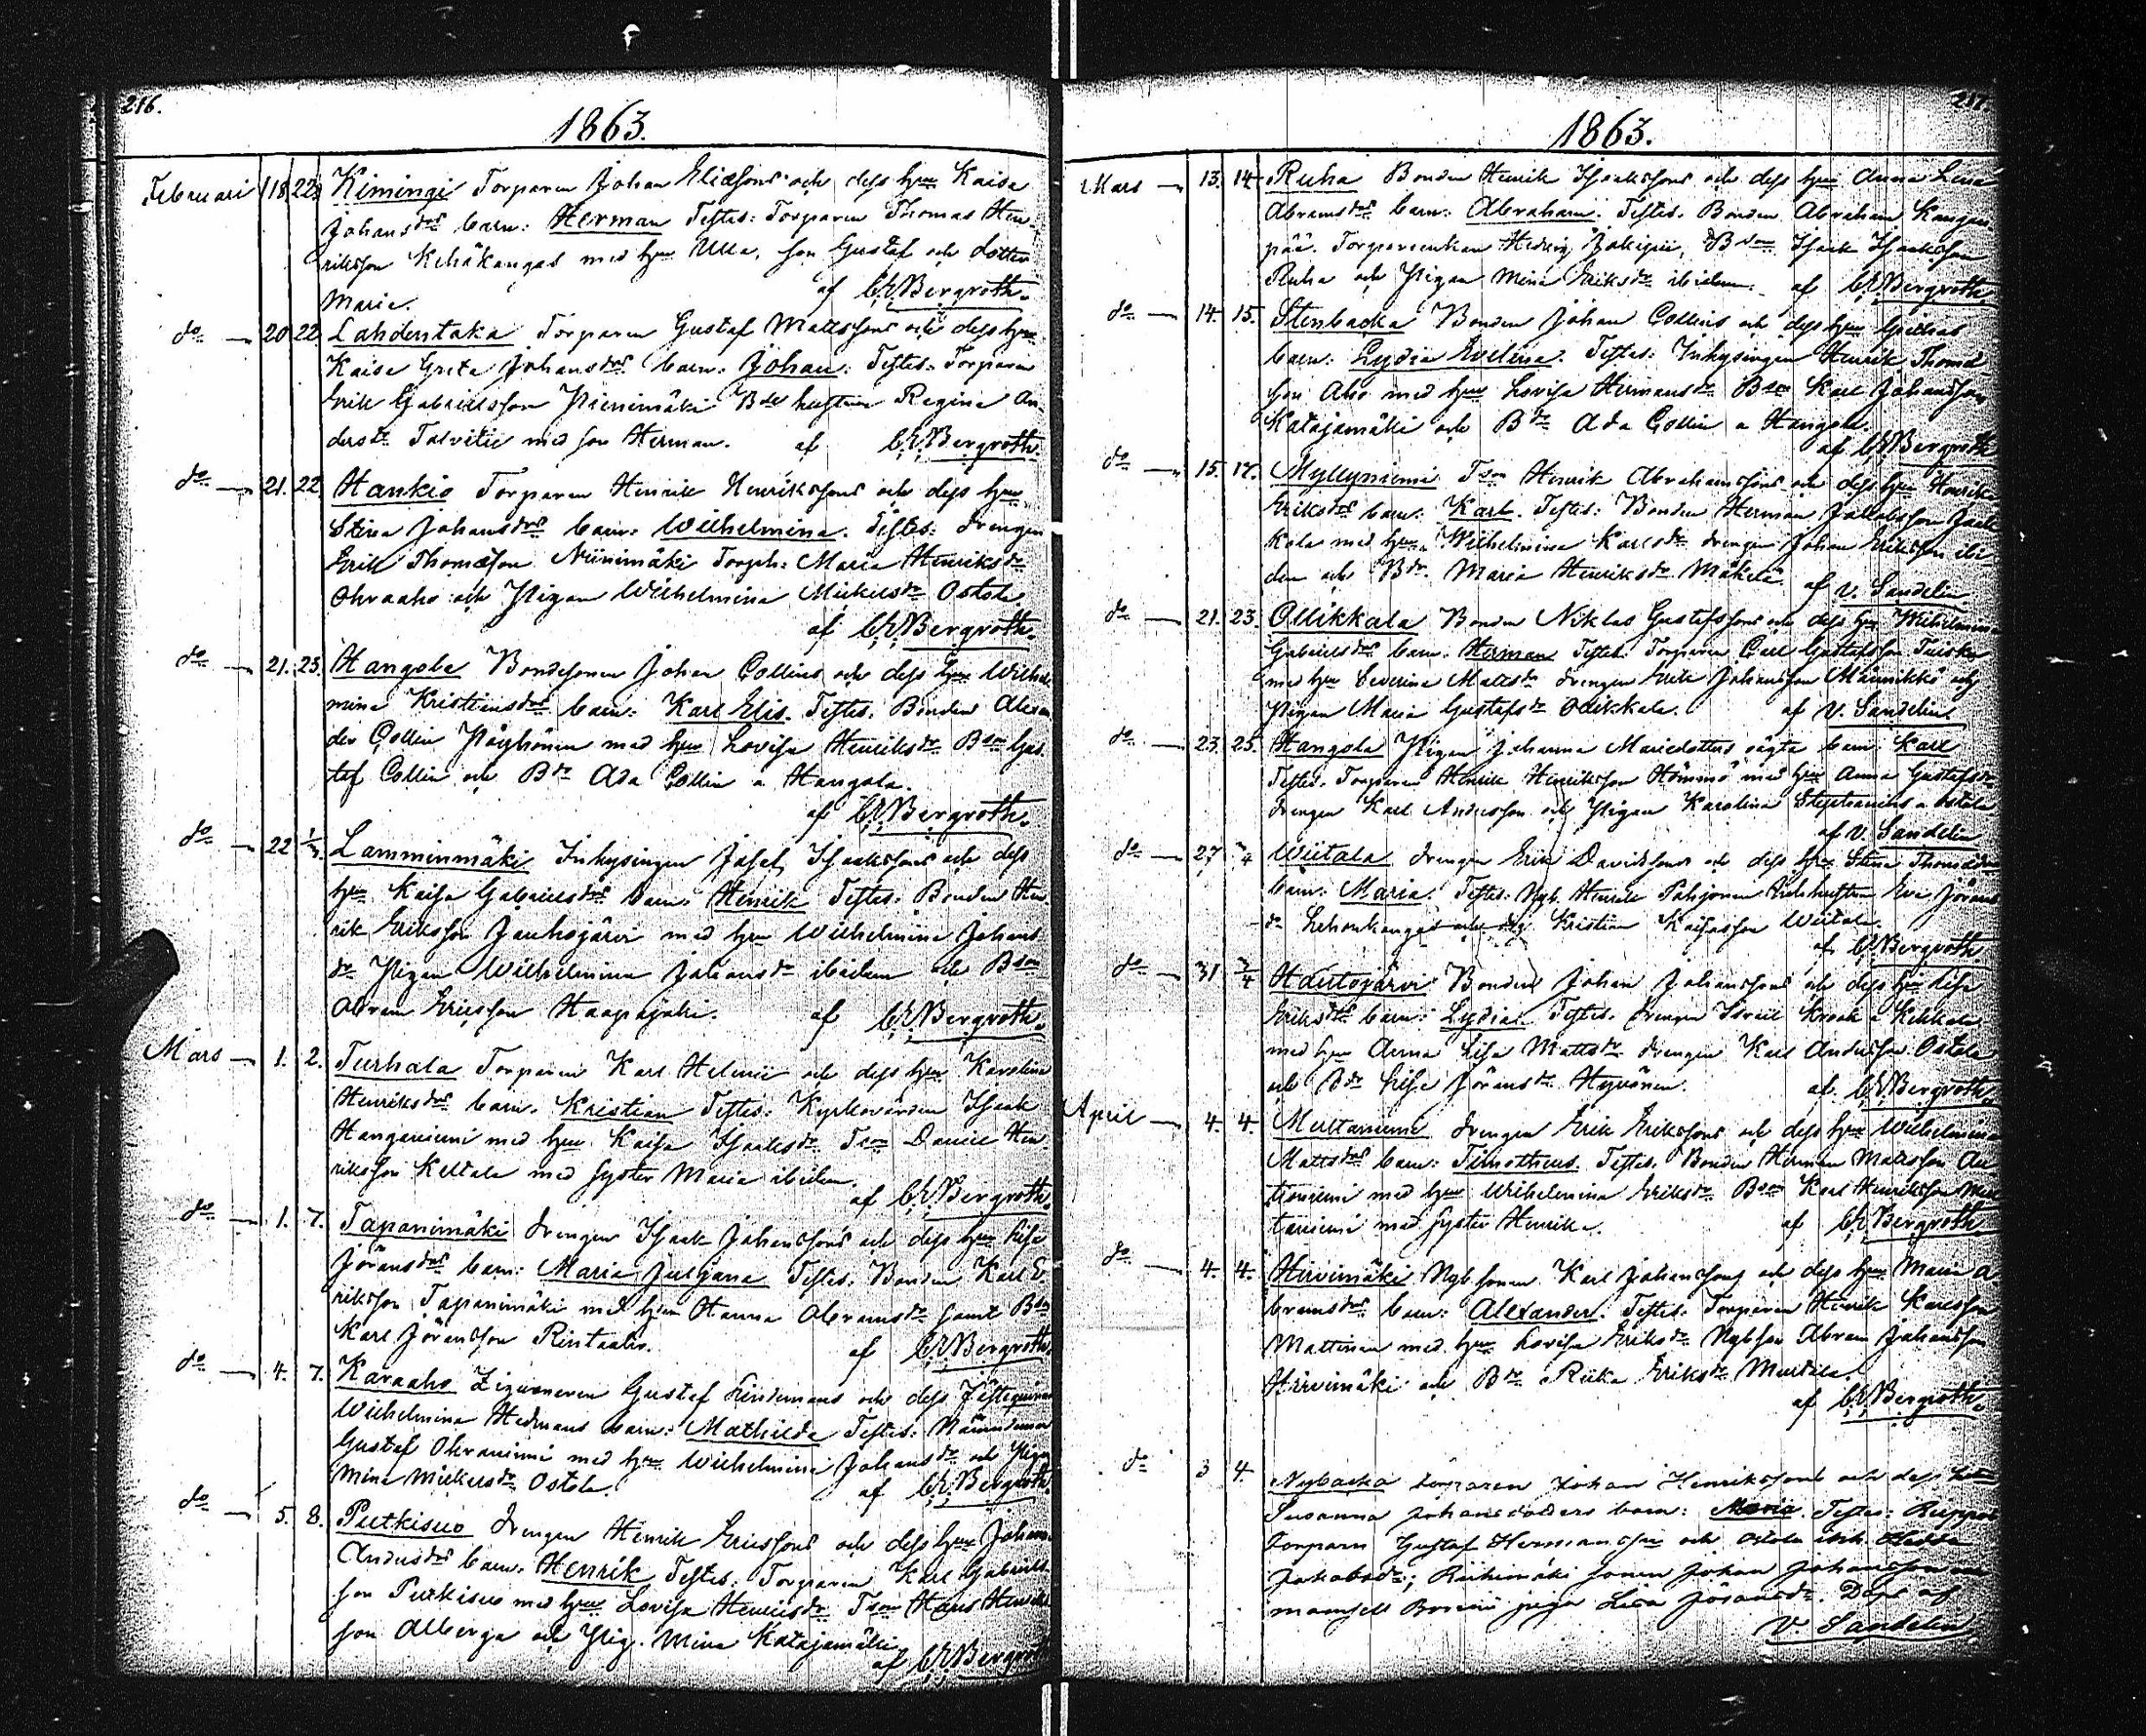 216.
1863.
Februari 18 22 Kimingi Torparen Johan Eliæsons och dess hu Kaisa
Johansdrs barn: Herman Testes: Torparen Thomas Hen-
riksson Kehäkangas med hu Ulla, son Gustaf och dotter
Maria. af C.E. Bergroth.
do 20 22 Lahdentaka Torparen Gustaf Mattssons och dess hu
Kaisa Greta Johansdrs barn: Johan. Testes: Torparen
Erik Gabrielsson Pienimäki Bde hustrun Regina An-
dersdr Talvitie med son Herman. af C.E. Bergroth.
do 21. 22 Hankio Torparen Henrik Henrikssons och dess hu
Stina Johansdrs barn: Wilhelmina. Testes: drengen
Erik Thomæson Niinimäki Torph: Maria Henriksdr
Ohraaho och Pigan Wilhelmina Mickelsdr Ostola
af C.E. Bergroth.
do 21. 23. Hangola Bondesonen Johan Collins och dess hu Wilhel
mina Kristiansdrs barn: Karl Elis. Testes: Bonden Alexan
der Collin Pöyhönen med hu Lovisa Henriksdr Bson Gus
taf Collin och Bdr Ada Collin a Hangola.
af C.E. Bergroth.
do 22 1/3 Lamminmäki Inhysingen Josef Isaakssons och dess
hu Kaisa Gabrielsdrs barn: Henrik Testes: Bonden Hen
rik Eriksson Jauhojärvi med hu Wilhelmina Johans
dr Pigan Wilhelmina Johansdr ibidem och Bson
Abram Ericsson Haapajärvi. af C.E. Bergroth.
Mars 1. 2. Turhala Torparen Karl Helenii och dess hu Karolina
Henriksdrs barn. Kristian Testes: Kyrkovärden Isaak
Hanganiemi med hu Kaisa Isaaksdr Tson Daniel Hen
riksson Keltala med syster Maria ibidem.
af C.E. Bergroth.
do 1. 7. Tapanimäki drengen Isaak Johanssons och dess hu Lisa
Jöransdrs barn: Maria Juljana Testes: Bonden Karl E
riksson Tapanimäki med hu Hanna Abramsdr samt Bson
Karl Jöransson Rintaaho. af C.E. Bergroth.
do 4. 7. Karaaho Zigenaren Gustaf Lindemans och dess Fästeqvinna
Wilhelmina Hedmans barn: Mathilda Testes: Nämndeman
Gustaf Ohraniemi med hu Wilhelmina Johansdr och Pigan
Mina Mickelsdr Ostola. af C.E. Bergroth.
do 5. 8. Putkisuo Drengen Henrik Ericssons och dess hu Johan
Andersdrs barn: Henrik Testes: Torparen Karl Gabriels
son Putkisuo med hu Lovisa Henricsdr Tson Hans Henriks
son Alberga och Pig. Mina Katajamäki
af C.E. Bergroth
217.
1863.
Mars 13. 14. Ruha Bonden Henrik Isaakssons och dess hu Anna Lena
Abramsdrs barn: Abraham. Testes: Bonden Abraham Kangas
pää. Torpareenkan Hedvig Jokipii, Bson Isaak Isaaksson
Ruha och Pigan Mina Eriksdr ibidem. af C.E. Bergroth
do 14. 15. Stenbacka Bonden Johan Collins och dess hu
barn: Lydia Evelina. Testes: Inhysingen Henrik Thomæ
son Aho med hu Lovisa Hermansdr Bson Karl Johansson
Katajamäki och Bdr Ada Collin a Hangola.
af C.E. Bergroth
do 15. 17. Myllyniemi Tson Henrik Abrahamssons och dess hu Henrika
Eriksdrs barn: Karl. Testes: Bonden Herman Jakobsson Jaak
kola med hu Wilhelmina Karlsdr drengen Johan Eriksson ibi
dem och Bdr. Maria Henriksdr Mäkelä.
af V. Sandelin
do 21. 23. Ollikkala Bonden Niklas Gustafssons och dess hu Wilhelmina
Gabrielsdrs barn: Herman Testes: Torparen Carl Gustafsson Tuisku
med hu Severina Mattsdr drengen Erik Johansson Männikkö och
Pigan Maria Gustafsdr Ollikkala. af V. Sandelin.
do 23. 25. Hangola Pigan Johanna Mariedotters oägta barn: Karl
Testes: Torparen Henrik Henriksson Hömmö med hu Anna Gustafsdr
drengen Karl Andersson och Pigan Karolina Stephanidr a Ostola
af V. Sandelin
do 27 3/4 Wiitala drengen Erik Davidssons och dess hu Stina Thomædrs
barn: Maria. Testes: Nyb. Henrik Pohjonen Enkehustrun Eva Jörans
dr Lehonkangas och drg Kristian Kaisasson Wiitala.
af C.E. Bergroth.
do 31 3/4 Hautojärvi Bonden Johan Johanssons och dess hu Lisa
Eriksdrs barn: Lydia. Testes: Drengen Israel Krook a Kekkola
med hu Anna Lisa Mattsdr drengen Karl Andersson Ostola
och Bdr Lisa Jöransdr Hyvönen. af C.E. Bergroth.
April 4. 4. Multaniemi drengen Erik Erikssons och dess hu Wilhelmina
Mattsdrs barn: Timotheus. Testes: Bonden Herman Mattsson An
tioniemi med hu Wilhelmina Eriksdr Bson Karl Henriksson Mul
taniemi med syster Henrika. af C.E. Bergroth
do 4. 4. Hirvimäki Nyb. sonen Karl Johanssons och dess hu Maria A
bramsdrs barn: Alexander. Testes: Torparen Henrik Karlsson
Mattinen med hu Lovisa Eriksdr Nybson Abram Johansson
Hirvimäki och Bdr Riika Eriksdr Murtola.
af C.E. Bergroth.
do 3 4. Nybacka torparen Johan Henrikssons och dess hustru
Susanna Johansdotters barn: Maria. Testes:
Torparn Gustaf Hermansson och Hedda
Jakobsdr; Riihimäki sonen Johan Johansson
mamsell piga Lisa Jöransdr. Döpt af
V. Sandelin